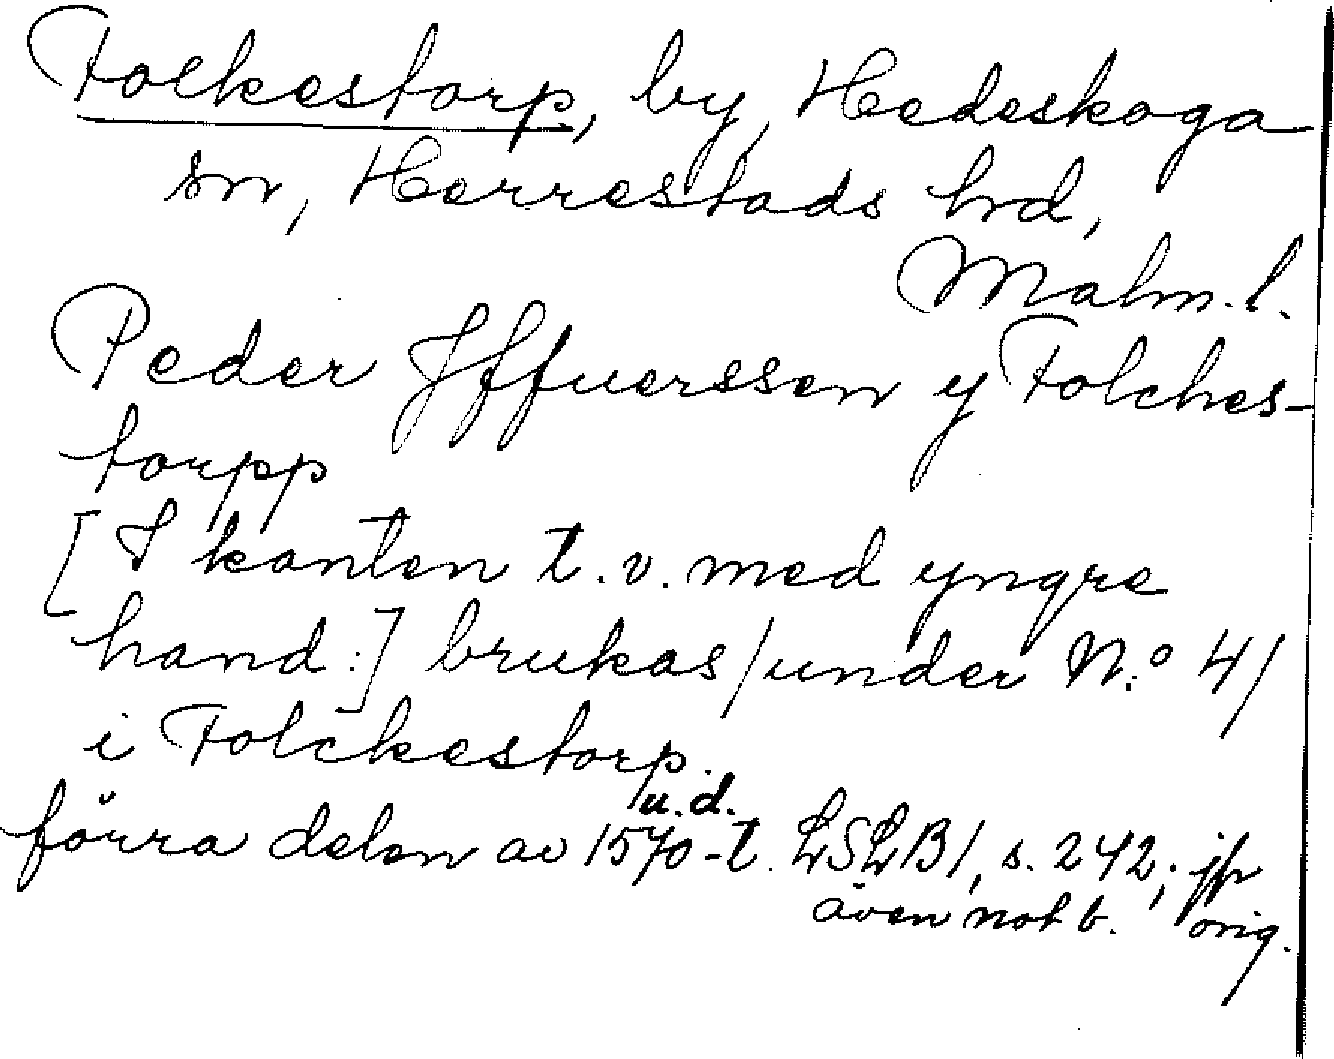 Folkestorp, by, Hedeskoga
sn, Herrestads hrd,
Malm. l.
Peder Jffuerssen y Folches-
torpp
[I kanten t.v. med yngre
hand:] brukas/under N:o 4/
i Folckestorp.
u.d.
förra delen av 1570-t. LSLB1, s. 242; jfr
även not b. orig.